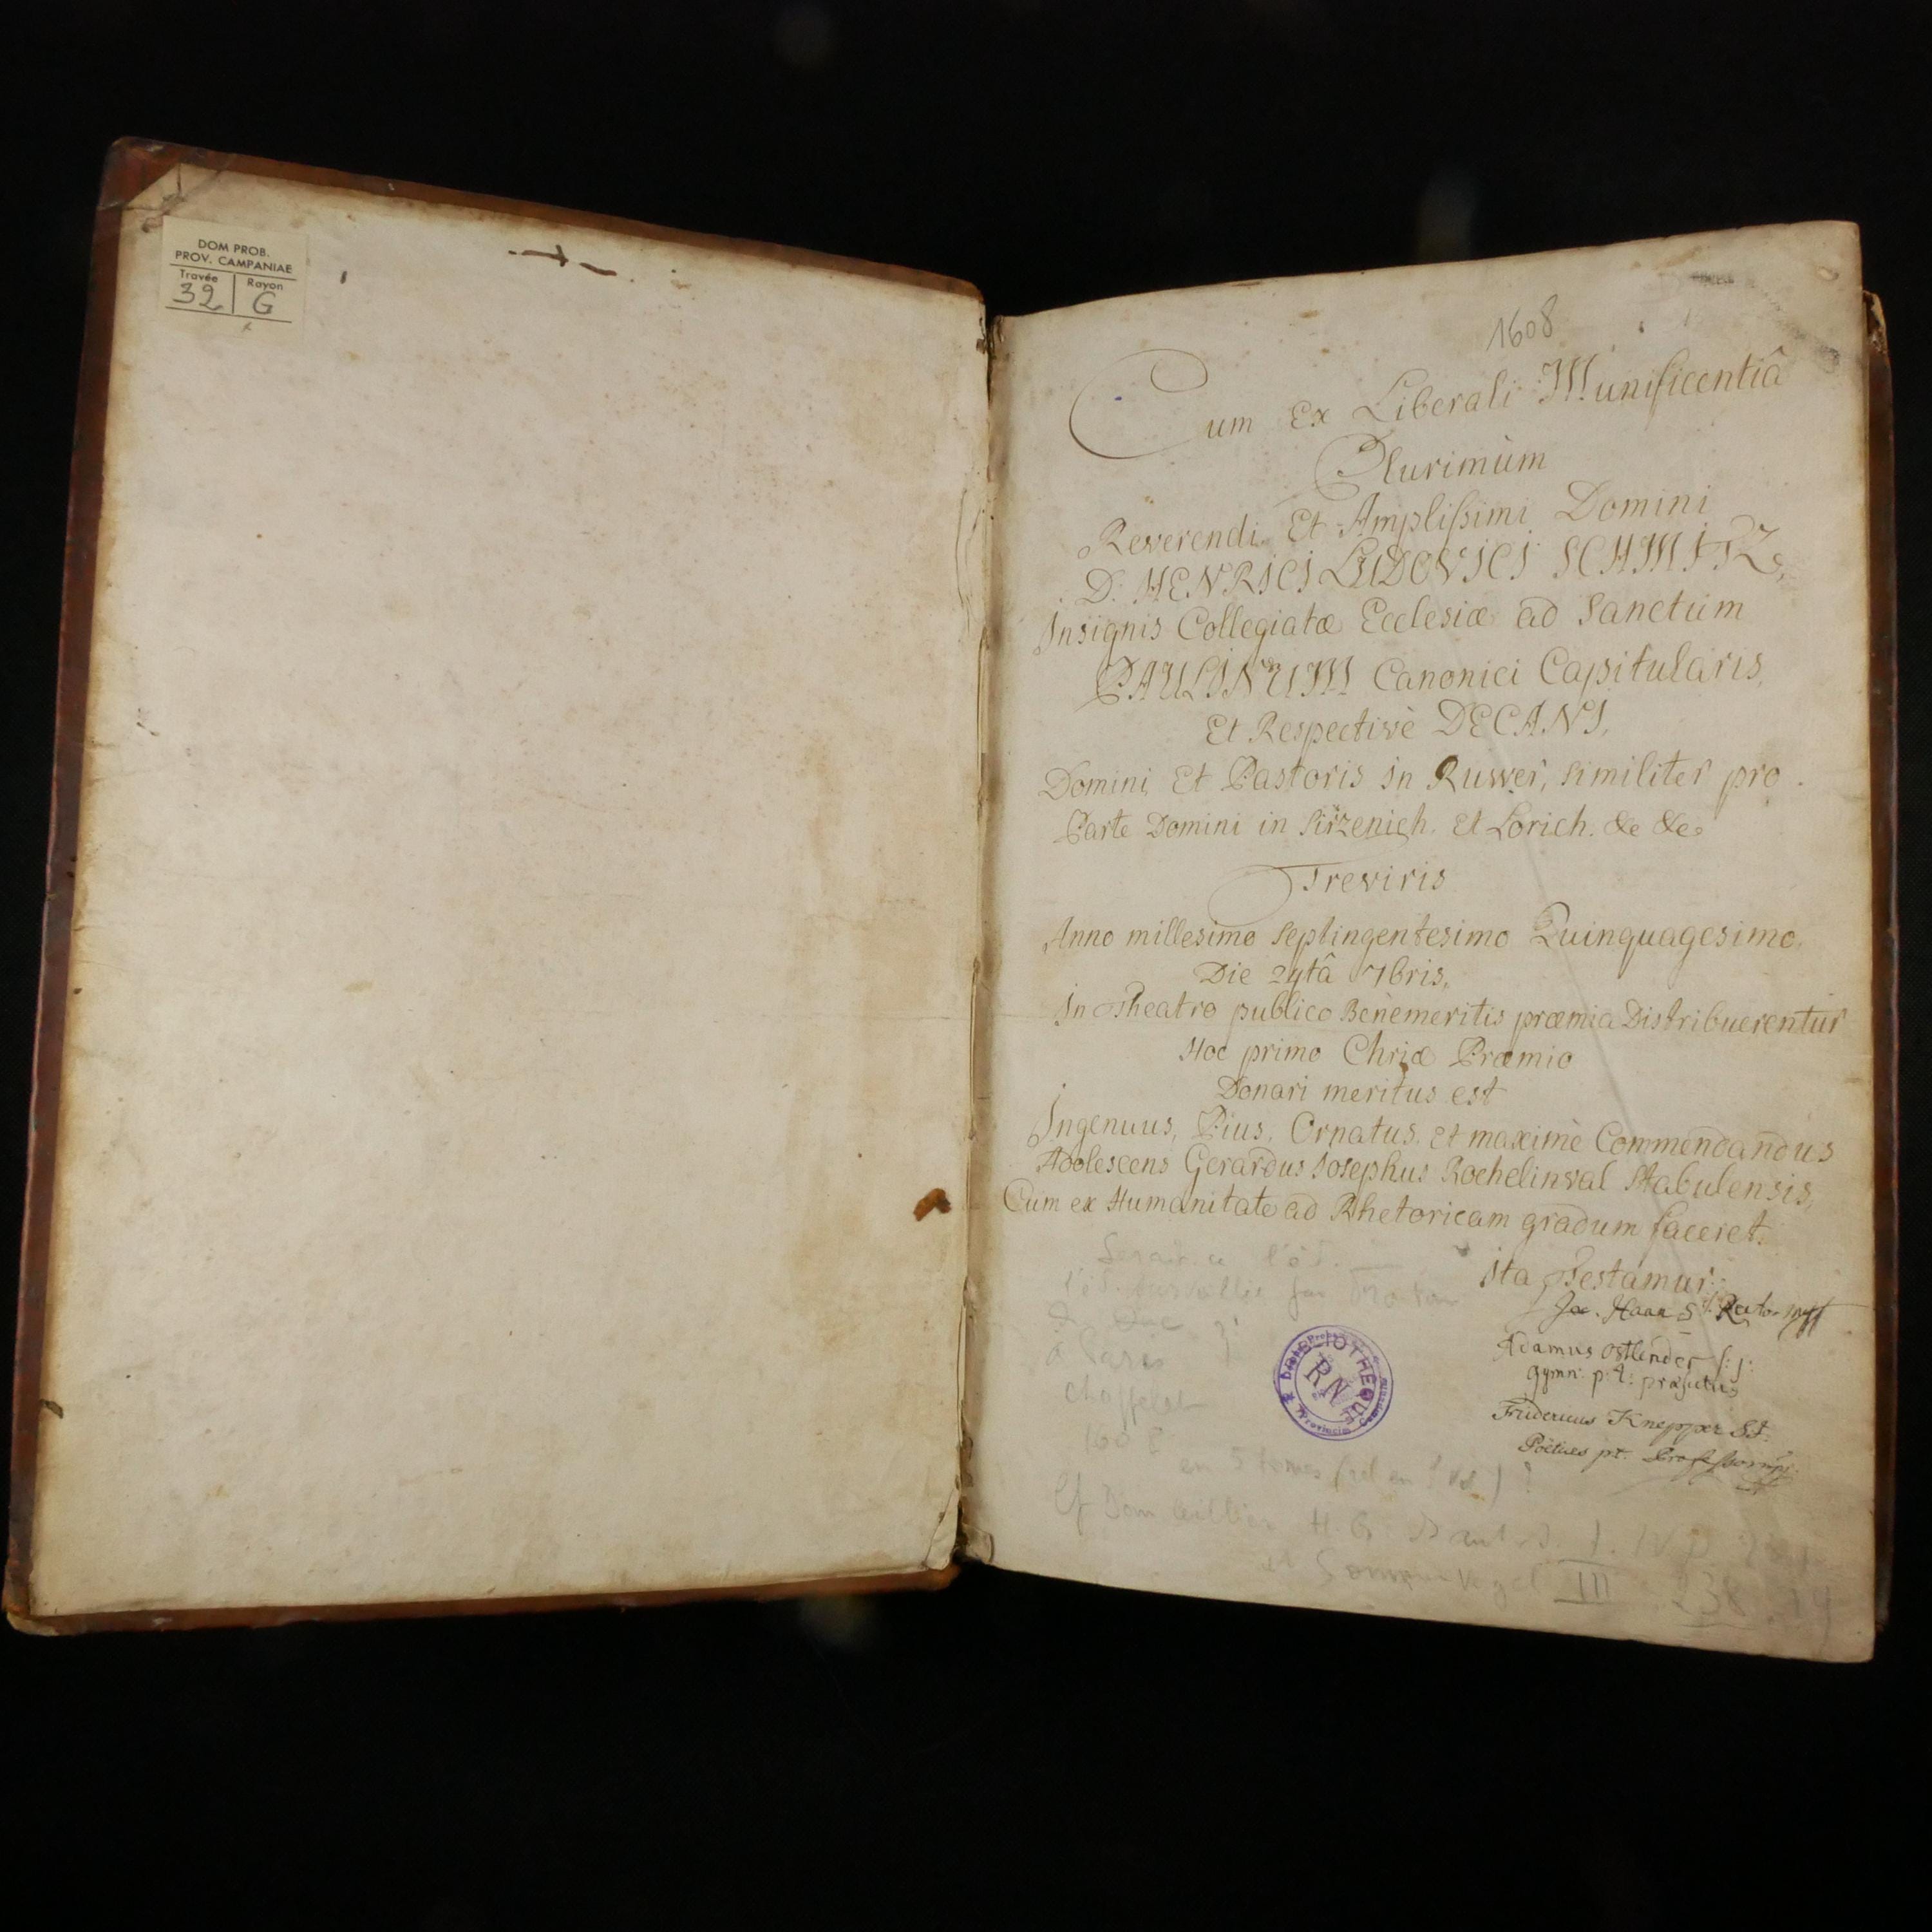 DOM PROB.
PROV. CAMPANIAE
Travée Rayon
32 G
1608
Cum Ex Liberali Munificentiâ
Plurimùm
Reverendi Et Amplissimi Domini
D. HENRICI LUDOVICI SCHMITZ,
Insignis Collegiatæ Ecclesiæ ad Sanctum
PAULINUM Canonici Capitularis,
Et Respectivè DECANI,
Domini Et Pastoris in Ruwer, Similiter pro
Parte Domini in Sirzenich, Et Lorich. &c &c.
Treviris
Anno millesimo Septingentesimo Quinquagesimo,
Die 24tâ 7bris,
In Theatro publico Benèmeritis præmia Distribuerentur
Hoc primo Chriæ Præmio
Donari meritus est
Ingenuus, Pius, Ornatus, Et maximè Commendandus
Adolescens Gerardus Josephus Rochelinval Stabulensis,
Cum ex Humanitate ad Rhetoricam gradum faceret.
Ita Testámur:
Haan S.J. Rector
Adamus Ostlender S:J:
Gymn: p:t: præfectus
Fridericus Knepper SJ.
Poëtices pt. Professor
BIBLIOTHEQUE
RN
à Paris
100
en 5 tomes (rel en
Cf Dom Ceillier H. G.
et Sommervogel III 238